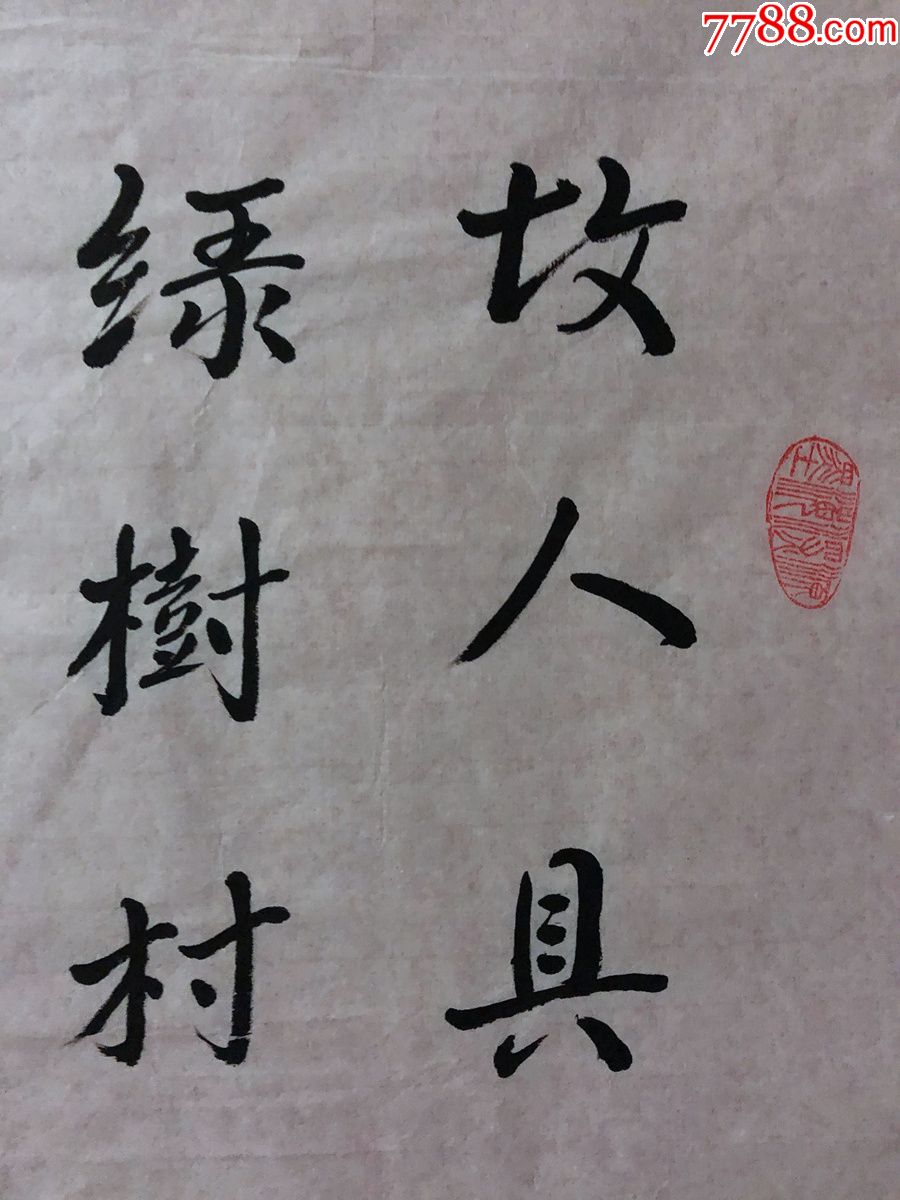 7788.com
故人具
绿樹村